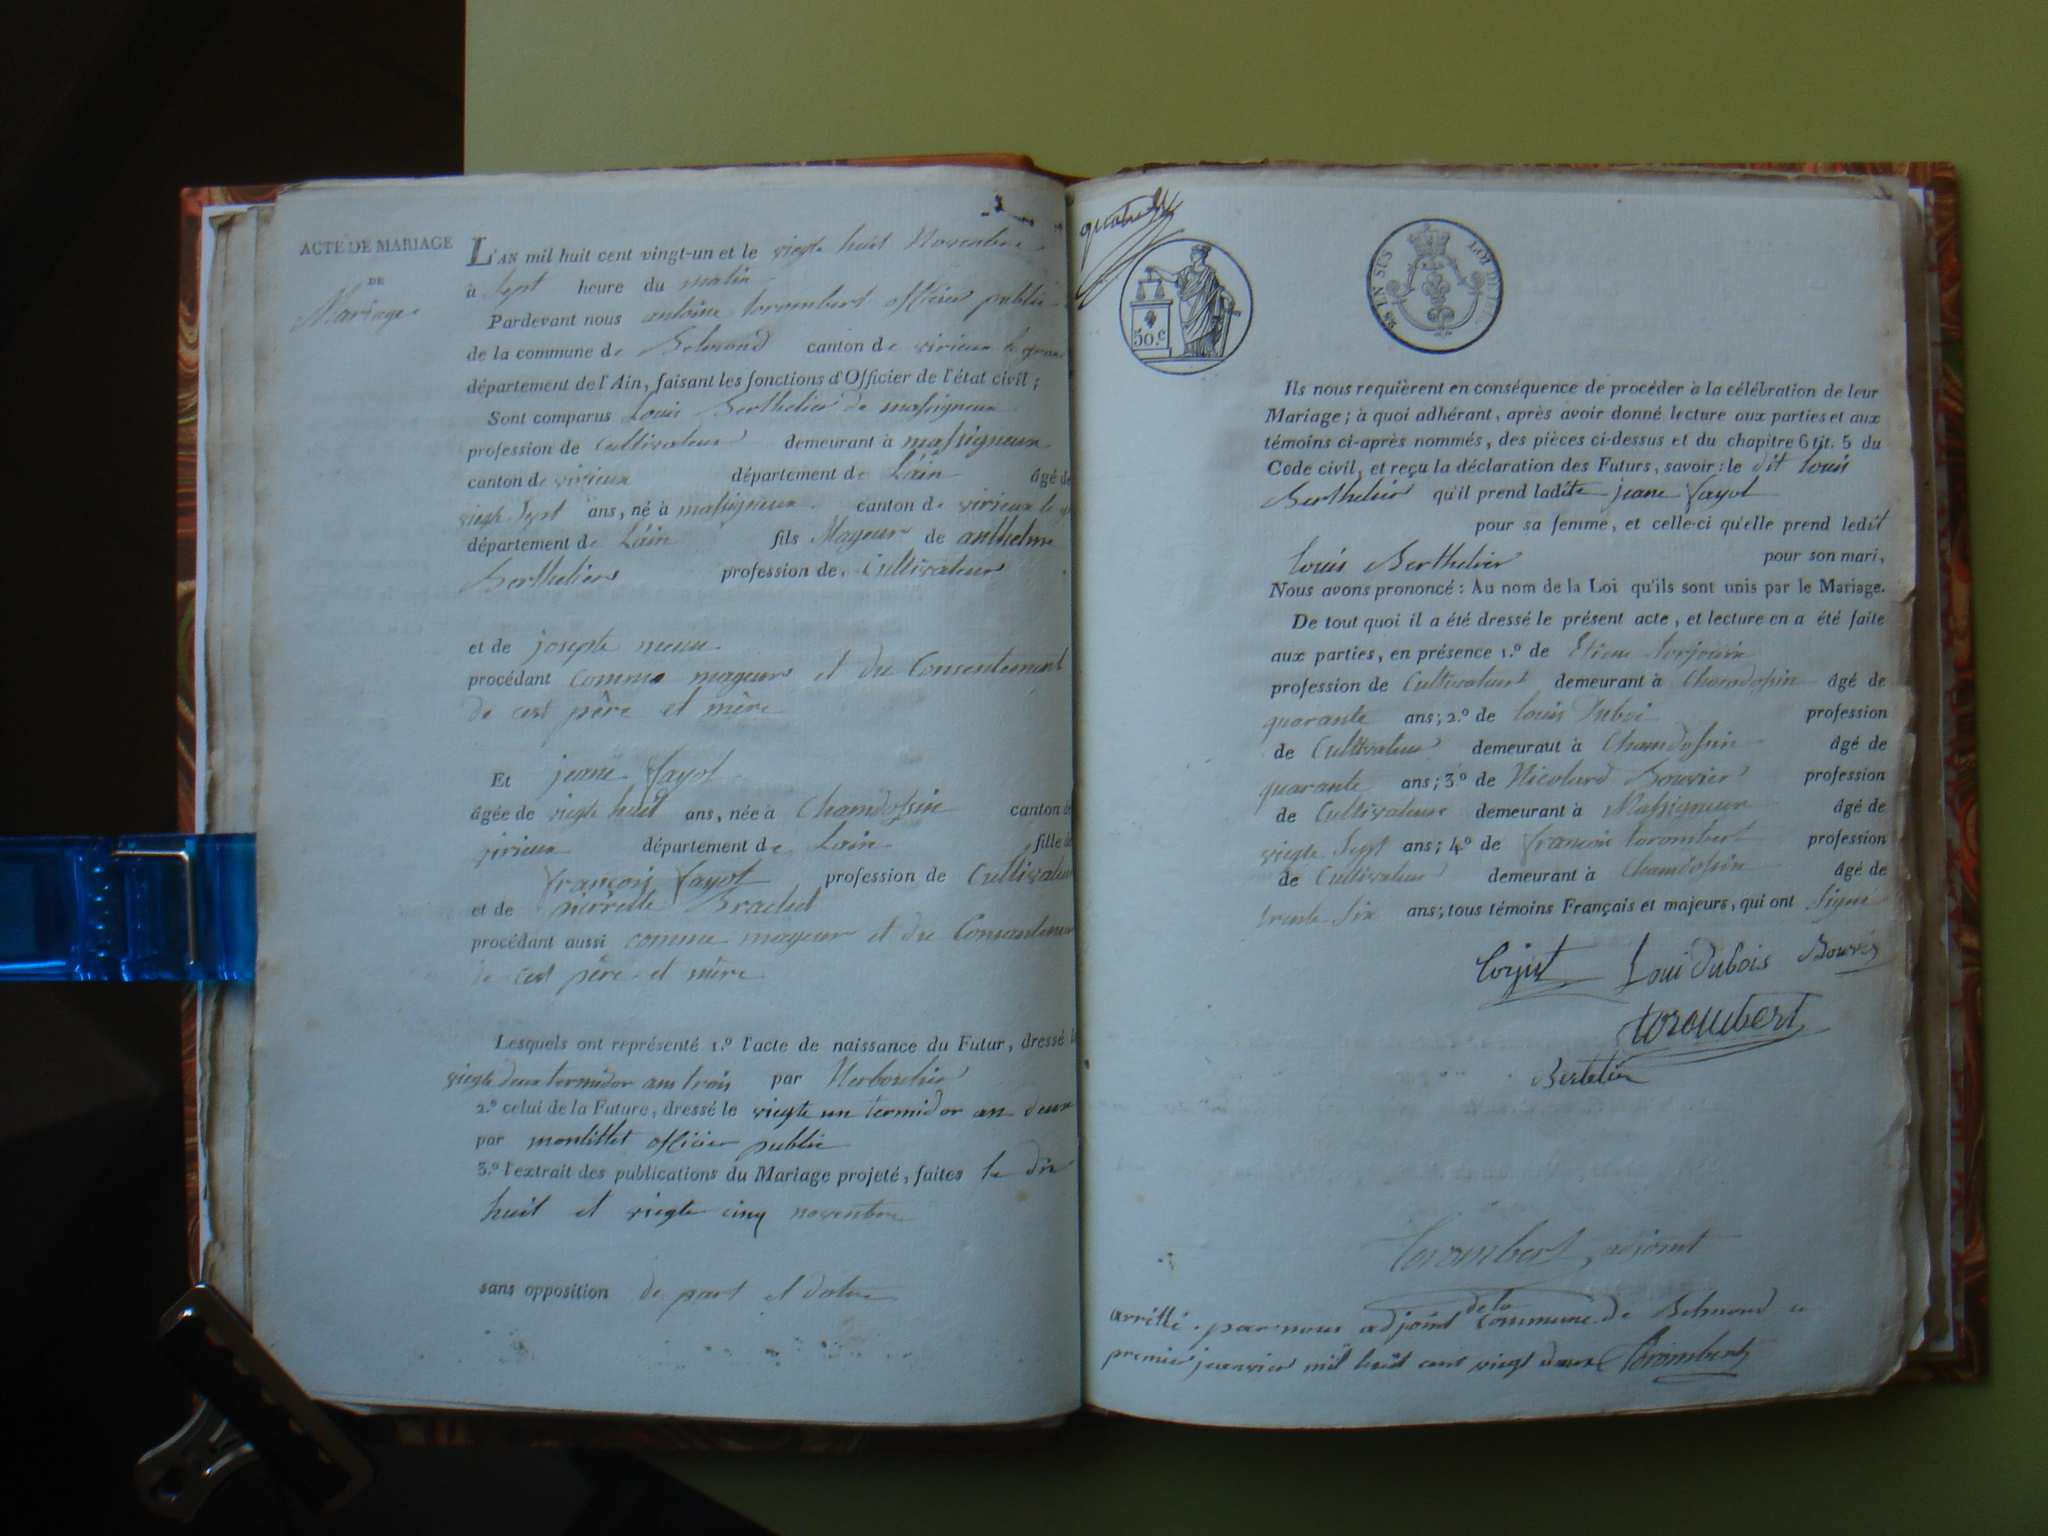 ACTE DE MARIAGE
DE
Mariage
L'AN mil huit cent vingt-un et le viegte huit Novembre
à Sept heure du matin
Pardevant nous antoine torombert officier public
de la commune de Belmond canton de virieux le gran
département de l'Ain, faisant les fonctions d'Officier de l'état civil;
Sont comparus Louis Berthelier de massigneux
profession de Cultivateur demeurant à massigneux
canton de virieux département de Lain âgé de
viegte Sept ans, né à massigneux canton de virieux le
département de Lain fils Mayeur de anthelme
Berthelier profession de Cultivateur
et de josepte
procédant comme mayeur et du Consentement
de cest père et mère
Et jeane fayot
âgée de viegte huit ans, née à Chamdossin canton de
virieux département de Lain fille de
françois fayot profession de Cultivateur
et de pierrette Brachet
procédant aussi comme mayeur et du Consentement
de cest père et mère
Lesquels ont représenté 1.º l'acte de naissance du Futur, dressé l
viegte deux termidor ans trois par
2.º celui de la Future, dressé le viegte un termidor an deux
par montillet officier public
3.º l'extrait des publications du Mariage projeté, faites le dix
huit et viegte cinq novembre
sans opposition de part et dotre
50.c
Ils nous requièrent en conséquence de procéder à la célébration de leur
Mariage; à quoi adhérant, après avoir donné lecture aux parties et aux
témoins ci-après nommés, des pièces ci-dessus et du chapitre 6 tit. 5 du
Code civil, et reçu la déclaration des Futurs, savoir: le dit louis
Berthelier qu'il prend ladite jeane fayot
pour sa femme, et celle-ci qu'elle prend ledit
louis Berthelier pour son mari,
Nous avons prononcé: Au nom de la Loi qu'ils sont unis par le Mariage.
De tout quoi il a été dressé le présent acte, et lecture en a été faite
aux parties, en présence 1.º de Etiene
profession de Cultivateur demeurant à Chamdossin âgé de
quarante ans; 2.º de louis Duboi profession
de Cultivateur demeurant à Chamdossin âgé de
quarante ans; 3.º de Nicolard Bouvier profession
de Cultivateur demeurant à Massigneux âgé de
viegte Sept ans; 4.º de françois torombert profession
de Cultivateur demeurant à Chamdossin âgé de
trente Six ans; tous témoins Français et majeurs, qui ont Signé
Loui dubois
torombert
Bertelier
torombert, adjoint
arrêtté par nous adjoint de la Commune de Belmond ce
premier jeanvier mil huit cent viegt deux torombert